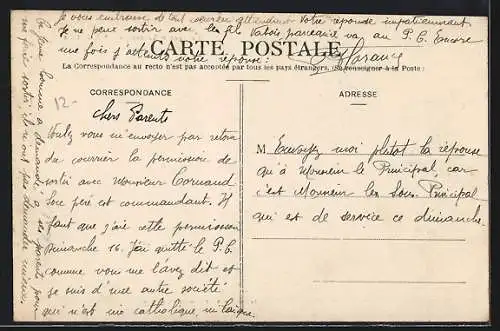 Je vous embrasse de tout coeur en attendant votre réponse impatiemment
Je ne peux sortir avec les fils Valois parce qu'il va au P.C. Encore
une fois j'attends votre réponse :
CARTE POSTALE
La Correspondance au recto n'est pas acceptée par tous les pays étrangers. (Se renseigner à la Poste)
CORRESPONDANCE
ADRESSE
12-
Chers Parents
Voulez vous m'envoyer par retour
du courrier la permission de
sortir avec Monsieur
père est commandant. Il
faut que j'aie cette permission
Dimanche 16. J'ai quitté le P.C.
comme vous me l'avez dit et
je suis d'une autre société
qui n'est ni catholique ni laïque.
M. Envoyez moi plutôt la réponse
qu'à Monsieur le Principal, car
c'est Monsieur le Sous Principal
qui est de service ce dimanche.
Ce jeune homme a demandé à ses parents pour
me faire sortir. ils ne ont pas demandé mieux